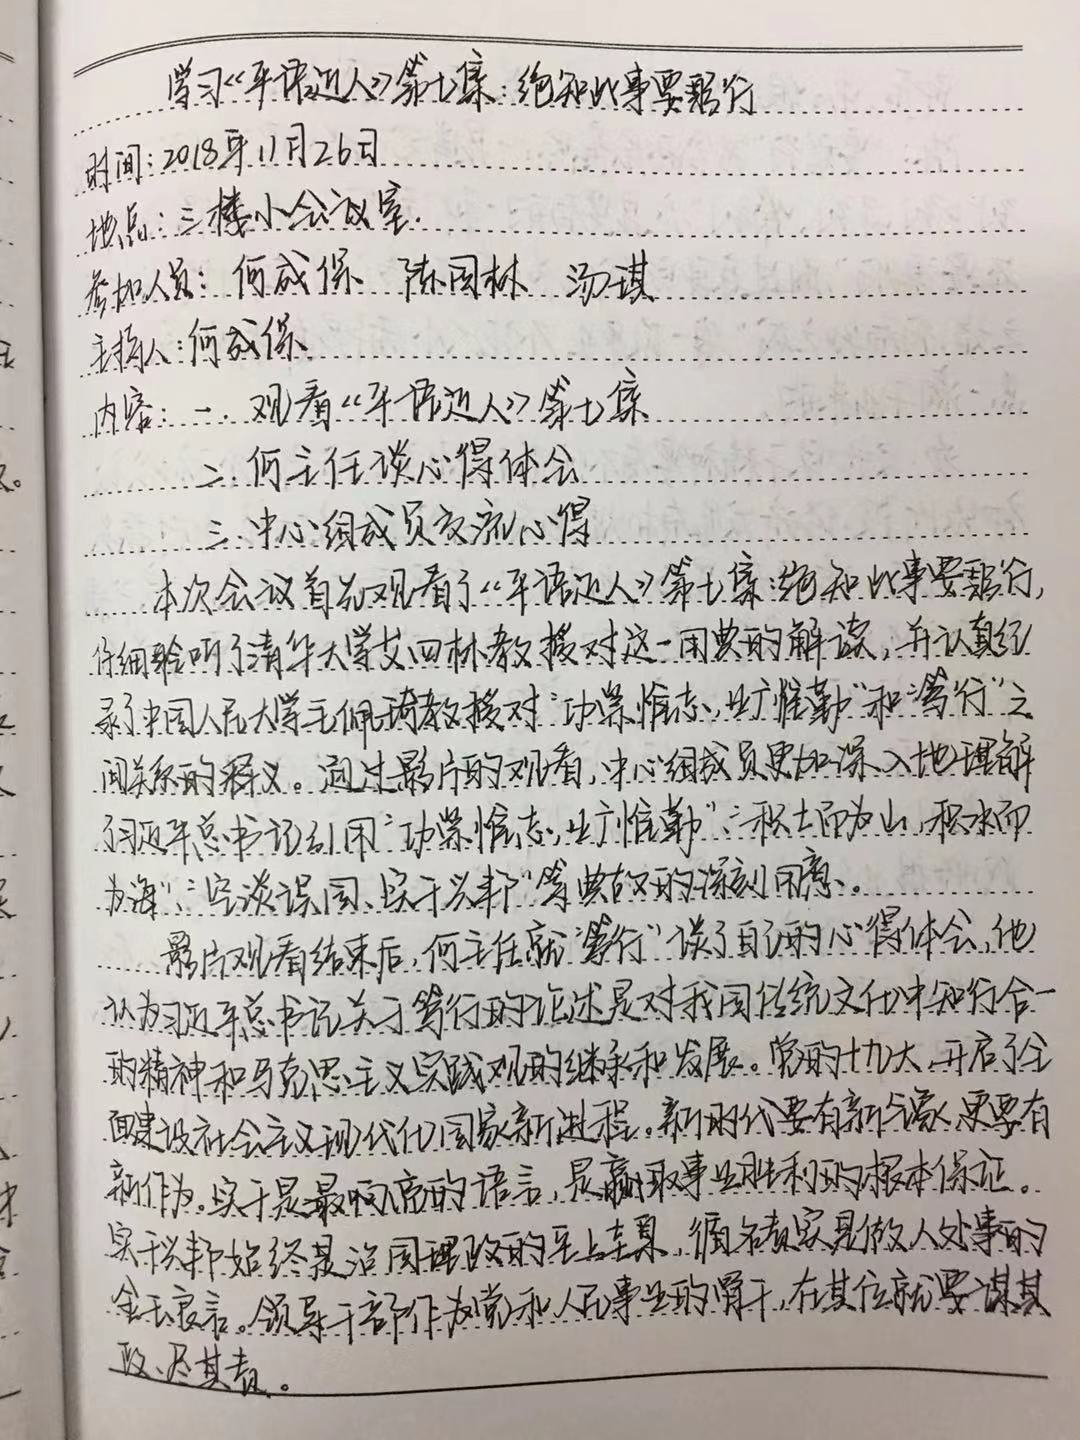 学习《平语近人》第七集：绝知此事要躬行
时间：2018年11月26日
地点：三楼小会议室.
参加人员：何成保 陈国林 汤琪
主持人：何成保
内容：一、观看《平语近人》第七集
二、何主任谈心得体会
三、中心组成员交流心得
本次会议首先观看了《平语近人》第七集：绝知此事要躬行，
仔细聆听了清华大学艾四林教授对这一用典的解读，并认真纪
录了中国人民大学王佩琦教授对“功崇惟志，业广惟勤”和“笃行”之
间关系的释义。通过影片的观看，中心组成员更加深入地理解
了习近平总书记引用“功崇惟志，业广惟勤”、“积土而为山，积水而
为海”、“空谈误国、实干兴邦”等典故的深刻用意。
影片观看结束后，何主任就“笃行”谈了自己的心得体会，他
认为习近平总书记关于笃行的论述是对我国传统文化中知行合一
的精神和马克思主义实践观的继承和发展。党的十九大，开启了全
面建设社会主义现代化国家新进程。新时代要有新气象，更要有
新作为。实干是最响亮的语言，是赢取事业胜利的根本保证。
实干兴邦始终是治国理政的至上圭臬，循名责实是做人处事的
金玉良言。领导干部作为党和人民事业的骨干，在其位就要谋其
政、尽其责。